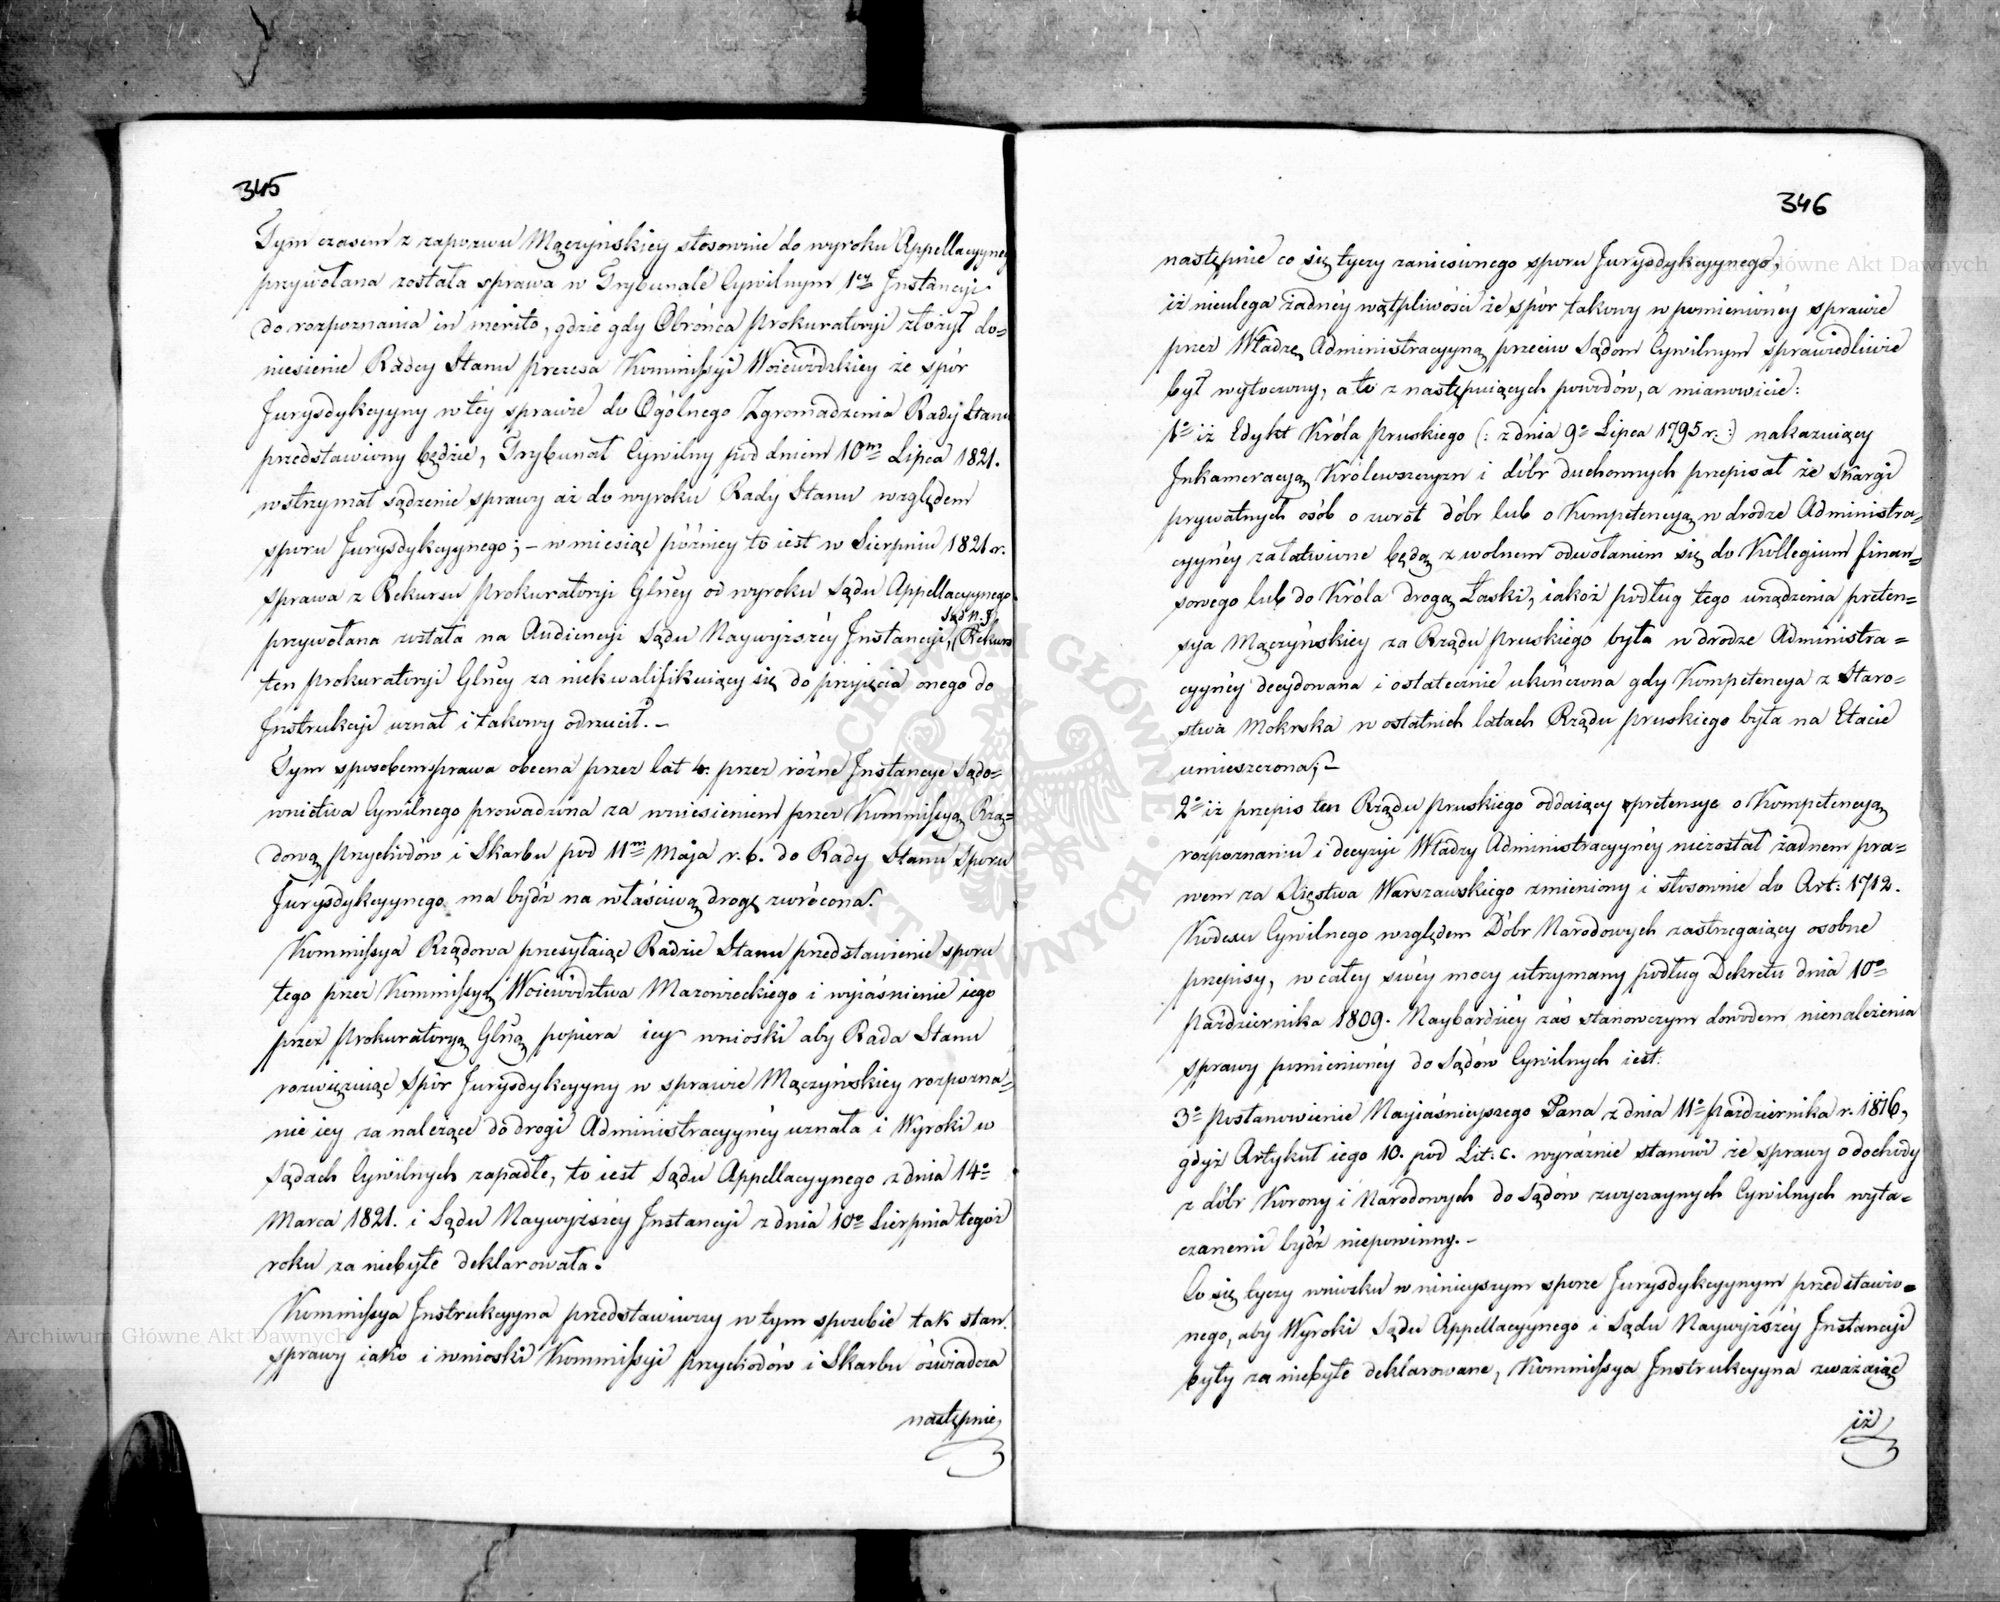 345
Tym czasem z zapozwu Mączyńskiey stosownie do wyroku Appellacyyneg
przywołana została sprawa w Trybunale Cywilnym 1ey Instancyi
do rozpoznania in merito, gdzie gdy Obrońca Prokuratoryi złożył do=
niesienie Radcy Stanu Prezesa Kommissyi Woiewódzkiey że spór
Jurysdykcyyny w téy sprawie do Ogólnego Zgromadzenia Rady Stanu
przedstawiony będzie, Trybunał Cywilny pod dniem 10m Lipca 1821.
wstrzymał sądzenie sprawy aż do wyroku Rady Stanu względem
sporu Jurysdykcyynego; – w miesiąc późniey to iest w Sierpniu 1821 r.
sprawa z Rekursu Prokuratoryi Glney od wyroku Sądu Appellacyynego
Sąd N. I.
przywołana została na Audiencyi Sądu Naywyższéy Instancyi, (Rekurs
ten Prokuratoryi Glney za niekwalifikuiący się do przyięcia onego do
Instrukcyi uznał i takowy odrzucił. –
Tym sposobem sprawa obecna przez lat 4. przez różne Instancye Sądo=
wnictwa Cywilnego prowadzona za wniesieniem przez Kommissyą Rzą=
dową Przychodów i Skarbu pod 11m Maja r. b. do Rady Stanu Sporu
Jurysdykcyynego ma bydź na właściwą drogę zwrócona.
Kommissya Rządowa przesyłaiąc Radzie Stanu przedstawienie sporu
tego przez Kommissyą Woiewództwa Mazowieckiego i wyjaśnienie iego
przez Prokuratoryą Glną popiera iey wnioski aby Rada Stanu
rozwięzuiąc Spór Jurysdykcyyny w sprawie Mączyńskiey rozpozna=
nie iey za należące do drogi Administracyynéy uznała i Wyroki w
Sądach Cywilnych zapadłe, to iest Sądu Appellacyynego z dnia 14o
Marca 1821. i Sądu Naywyższéy Instancyi z dnia 10o Sierpnia tegoż
roku za niebyłe deklarowała.
Kommissya Instrukcyyna przedstawiwszy w tym sposobie tak stan
sprawy iako i wnioski Kommissyi Przychodów i Skarbu oświadcza
następnie
346
następnie co się tyczy zaniesionego sporu Jurysdykcyynego,
iż nieulega żadnéy wątpliwości że spór takowy w pomienionéy sprawie
przez Władzę Administracyyną przeciw Sądom Cywilnym sprawiedliwie
był wytoczony, a to z następuiących powodów, a mianowicie:
1o iż Edykt Króla Pruskiego (: z dnia 9o Lipca 1795 r. :) nakazuiący
Inkameracyą Królewszczyzn i dóbr duchownych przepisał że Skargi
prywatnych osób o zwrot dóbr lub o Kompetencyą w drodze Administra=
cyynéy załatwione będą z wolnem odwołaniem się do Kollegium finan=
sowego lub do Króla drogą Łaski, iakoż podług tego urządzenia preten=
sya Mączyńskiey za Rządu Pruskiego była w drodze Administra=
cyynéy decydowana i ostatecznie ukończona gdy Kompetencya z Staro=
stwa Mokrska w ostatnich latach Rządu Pruskiego była na Etacie
umieszczona; –
2o iż przepis ten Rządu Pruskiego oddaiący pretensye o Kompetencyą
rozpoznaniu i decyzyi Władzy Administracyynéy niezostał żadnem pra=
wem za Xięstwa Warszawskiego zmieniony i stosownie do Art: 1712.
Kodexu Cywilnego względem Dóbr Narodowych zastrzegaiący osobne
przepisy, w całey swéy mocy utrzymany podług Dekretu dnia 10o
Października 1809. Naybardziéy zaś stanowczym dowodem nienależenia
sprawy pomienionéy do Sądów Cywilnych iest.
3o Postanowienie Nayiaśnieyszego Pana z dnia 11o Października r. 1816,
gdyż Artykuł iego 10. pod Lit: c. wyraźnie stanowi że sprawy o dochody
z dóbr Korony i Narodowych do Sądów zwyczaynych Cywilnych wyta=
czanemi bydź niepowinny. –
Co się tyczy wniosku w ninieyszym sporze Jurysdykcyynym przedstawio=
nego, aby Wyroki Sądu Appellacyynego i Sądu Naywyższéy Instancyi
były za niebyłe deklarowane, Kommissya Instrukcyyna zważaiąc
iż
Archiwum Główne Akt Dawnych